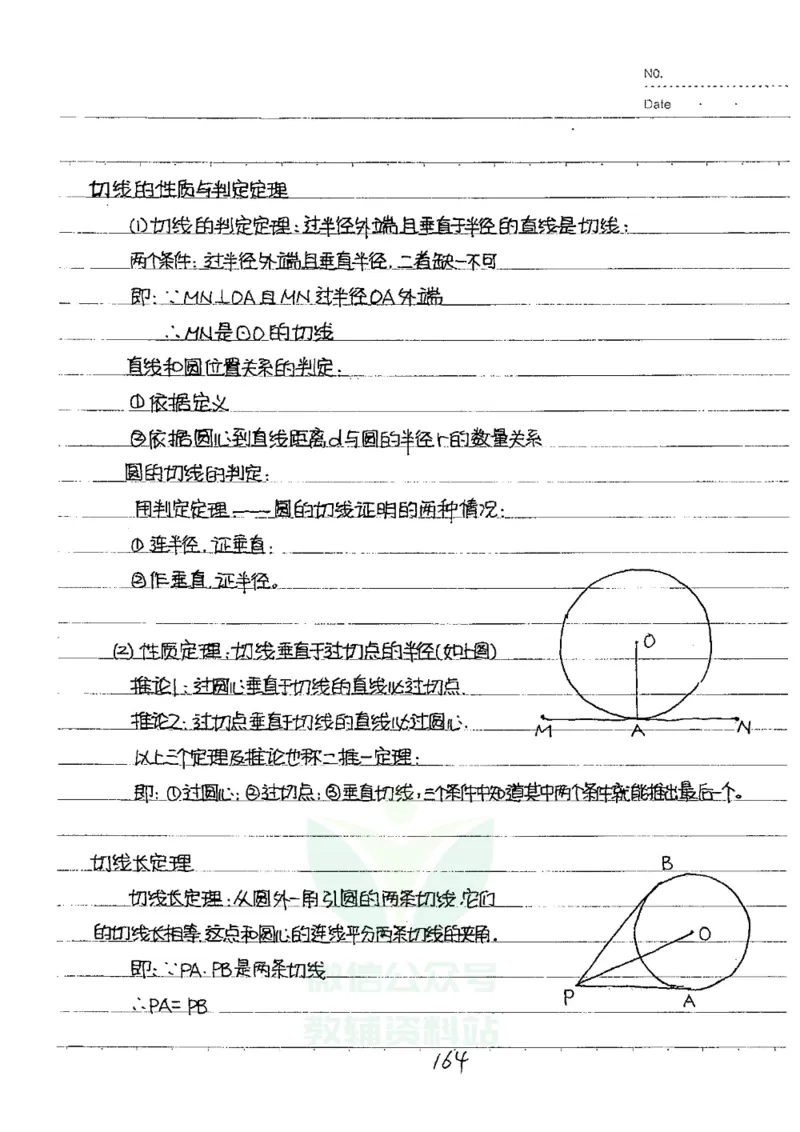 NO.
Date
切线的性质与判定定理
(1)切线的判定定理:过半径外端且垂直于半径的直线是切线;
两个条件:过半径外端且垂直半径,二者缺一不可
即:∵MN⊥OA且MN过半径OA外端
∴MN是⊙O的切线
直线和圆位置关系的判定.
①依据定义
②依据圆心到直线距离d与圆的半径r的数量关系
圆的切线的判定:
用判定定理——圆的切线证明的两种情况:
①连半径,证垂直;
②作垂直,证半径。
O
M A N
(2)性质定理:切线垂直于过切点的半径(如上图)
推论1:过圆心垂直于切线的直线必过切点.
推论2:过切点垂直于切线的直线必过圆心.
以上三个定理及推论也称二推一定理:
即:①过圆心;②过切点;③垂直切线,三个条件中知道其中两个条件就能推出最后一个。
切线长定理
切线长定理:从圆外一角引圆的两条切线,它们
的切线长相等,这点和圆心的连线平分两条切线的夹角.
即:∵PA、PB是两条切线
∴PA=PB
B
O
P A
微信公众号
教辅资料站
164